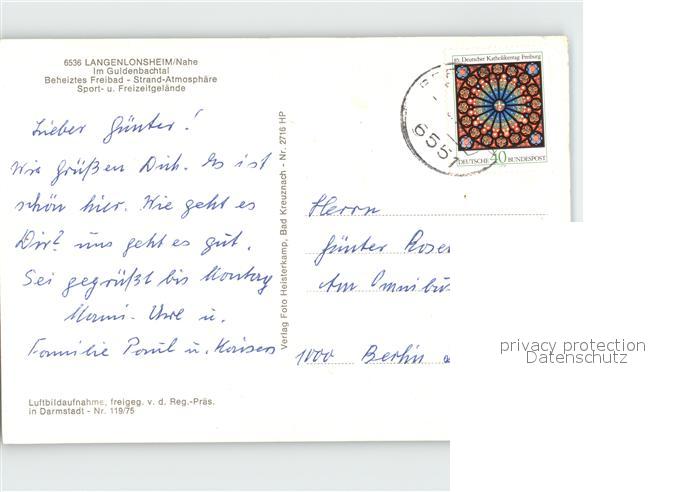 6536 LANGENLONSHEIM/Nahe
Im Guldenbachtal
Beheiztes Freibad - Strand-Atmosphäre
Sport- u. Freizeitgelände
Lieber Günter!
Wir grüßen Dich. Es ist
schön hier. Wie geht es
Dir? uns geht es gut.
Sei gegrüßt bis Montag
Mami. Uwe u.
Familie Paul u. Kaisers
Luftbildaufnahme, freigeg. v. d. Reg.-Präs.
in Darmstadt - Nr. 119/75
Verlag Foto Heisterkamp, Bad Kreuznach - Nr. 2716 HP
85. Deutscher Katholikentag Freiburg
DEUTSCHE 40 BUNDESPOST
6551
Herrn
Günter Rose
Am Omnibu
1000 Berlin
privacy protection
Datenschutz